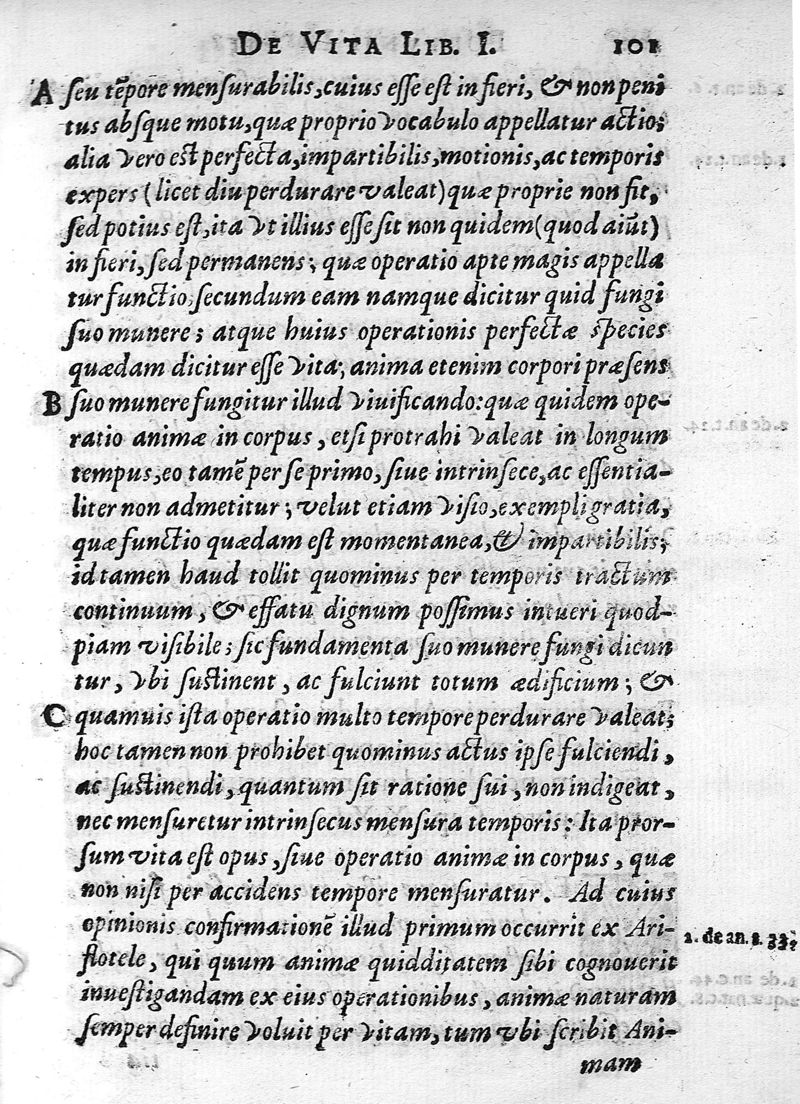 DE VITA LIB. I. 101
A seu tẽpore mensurabilis, cuius esse est in fieri, & non peni
tus absque motu, quæ proprio vocabulo appellatur actio;
alia vero est perfecta, impartibilis, motionis, ac temporis
expers (licet diu perdurare valeat) quæ proprie non fit,
sed potius est, ita vt illius esse sit non quidem (quod aiũt)
in fieri, sed permanens; quæ operatio apte magis appella
tur functio, secundum eam namque dicitur quid fungi
suo munere; atque huius operationis perfectæ species
quædam dicitur esse vita; anima etenim corpori præsens
B suo munere fungitur illud viuificando: quæ quidem ope-
ratio animæ in corpus, etsi protrahi valeat in longum
tempus, eo tamẽ per se primo, siue intrinsece, ac essentia-
liter non admetitur; velut etiam visio, exempli gratia,
quæ functio quædam est momentanea, & impartibilis;
id tamen haud tollit quominus per temporis tractum
continuum, & effatu dignum possimus intueri quod-
piam visibile; sic fundamenta suo munere fungi dicun
tur, vbi sustinent, ac fulciunt totum ædificium; &
C quamuis ista operatio multo tempore perdurare valeat;
hoc tamen non prohibet quominus actus ipse fulciendi,
ac sustinendi, quantum sit ratione sui, non indigeat,
nec mensuretur intrinsecus mensura temporis: Ita pror-
sum vita est opus, siue operatio animæ in corpus, quæ
non nisi per accidens tempore mensuratur. Ad cuius
opinionis confirmationẽ illud primum occurrit ex Ari-
stotele, qui quum animæ quidditatem sibi cognouerit
inuestigandam ex eius operationibus, animæ naturam
semper definire voluit per vitam, tum vbi scribit Ani-
mam